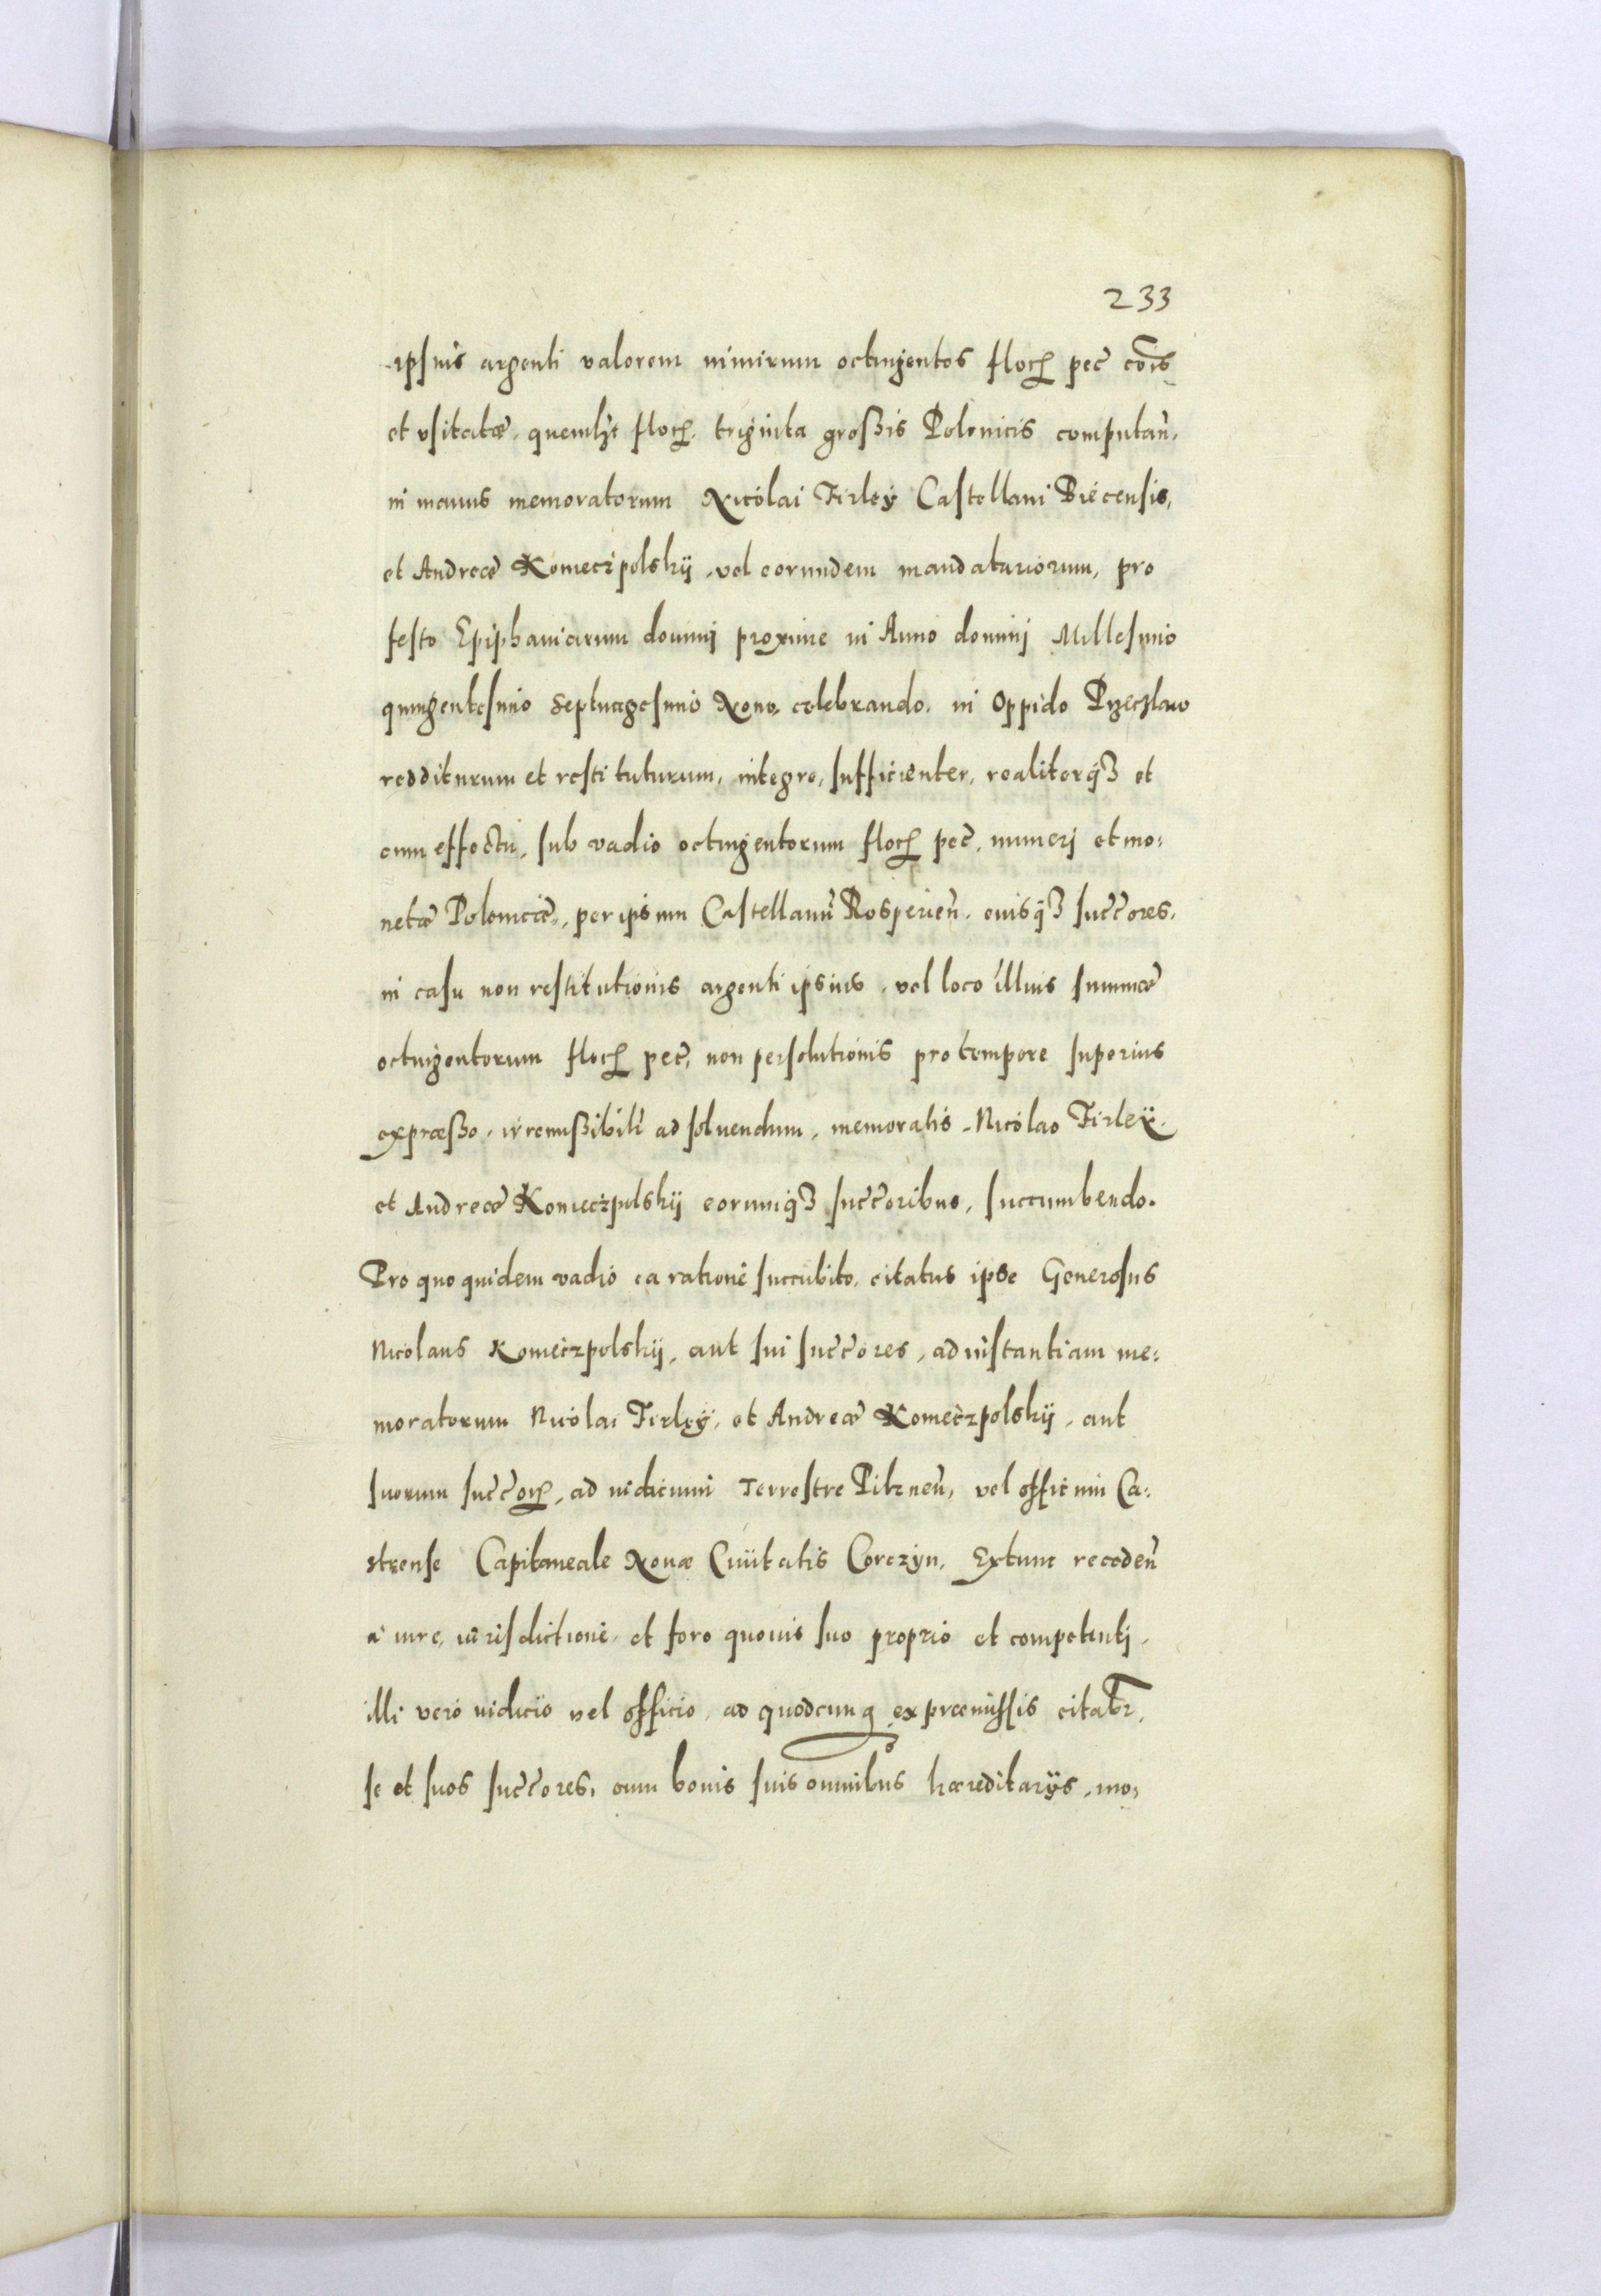 233
ipsius argenti valorem nimirum octingentos floꝝ pec̃ cõis
et vsitatæ, quemlꝫt floꝝ. triginta großis Polonicis computan̄.
in manus memoratorum Nicolai Firleÿ Castellani Biecensis,
et Andreæ Koniecżpolskÿ, vel eorundem mandatariorum, pro
festo Epiphaniarum dominj proxime in Anno dominj Millesimo
quingentesimo Septuagesimo Nono, celebrando, in Oppido Przeczlaw
redditurum et restituturum, integre, sufficienter, realiterq̃ꝫ et
cum effectu, sub vadio octingentorum floꝝ pec̃, numerj et mo:
netæ Polonicæ, per ipsum Castellanū Rosperien̄. eiusq̃ꝫ succ̃ores,
in casu non restitutionis argenti ipsius, vel loco illius summæ
octingentorum floꝝ pec̃, non persolutionis pro tempore superius
expræßo, irremißibilʼ ad soluendum, memoratis Nicolao Firleÿ,
et Andreæ Koniecżpolskÿ eorumq̃ꝫ succ̃oribus, succumbendo.
Pro quo quidem vadio ea ratione succubito, citatus ipse Generosus
Nicolaus Koniecżpolskÿ, aut sui succ̃ores, ad instantiam me:
moratorum Nicolai Firleÿ, et Andreæ Koniecżpolskÿ, aut
suorum succ̃oꝝ, ad iudicium Terrestre Pilznen̄, vel officium Ca:
strense Capitaneale Nouæ Ciuitatis Corczyn, Extunc receden̄
a iure, iurisdictione, et foro quouis suo proprio et competentj,
illi vero iudicio vel officio, ad quodcunqꝫ ex præmissis citatr̃,
se et suos succ̃ores, cum bonis suis omnibus hæreditarÿs, mo,